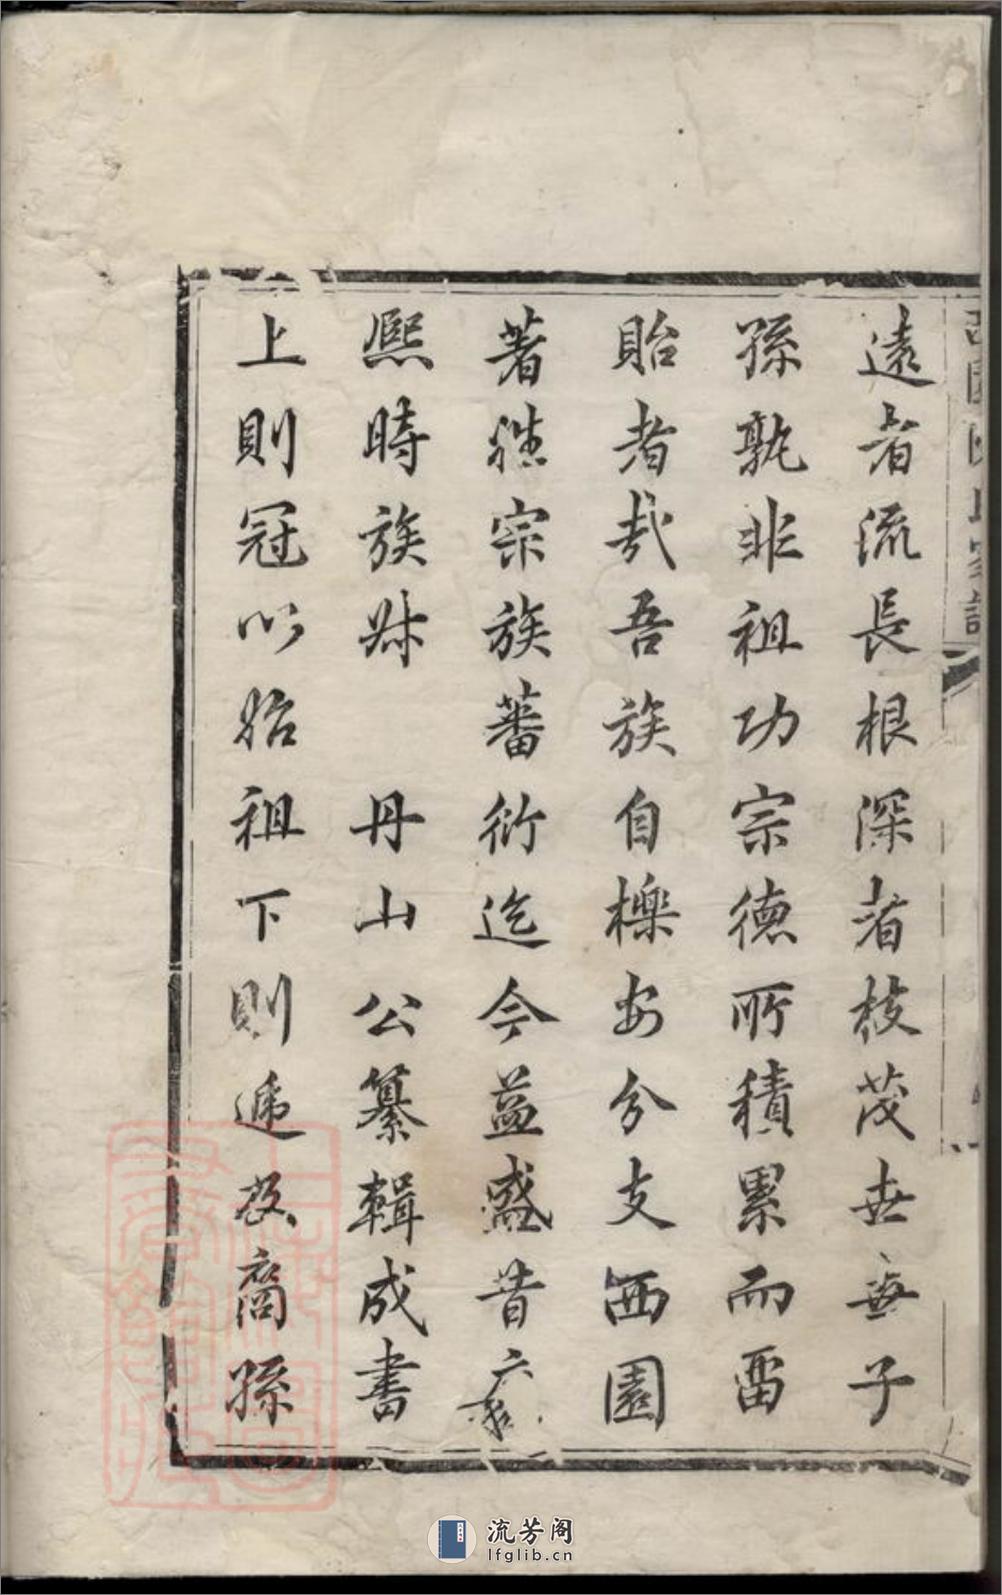 遠者流長根深者枝茂世無子
孫孰非祖功宗德所積累而留
貽者哉吾族自櫟安分支西園
著雄宗族蕃衍迄今益盛昔
熙時族叔 丹山公纂輯成書
上則冠以始祖下則遞及裔孫
流芳阁
lfglib.cn